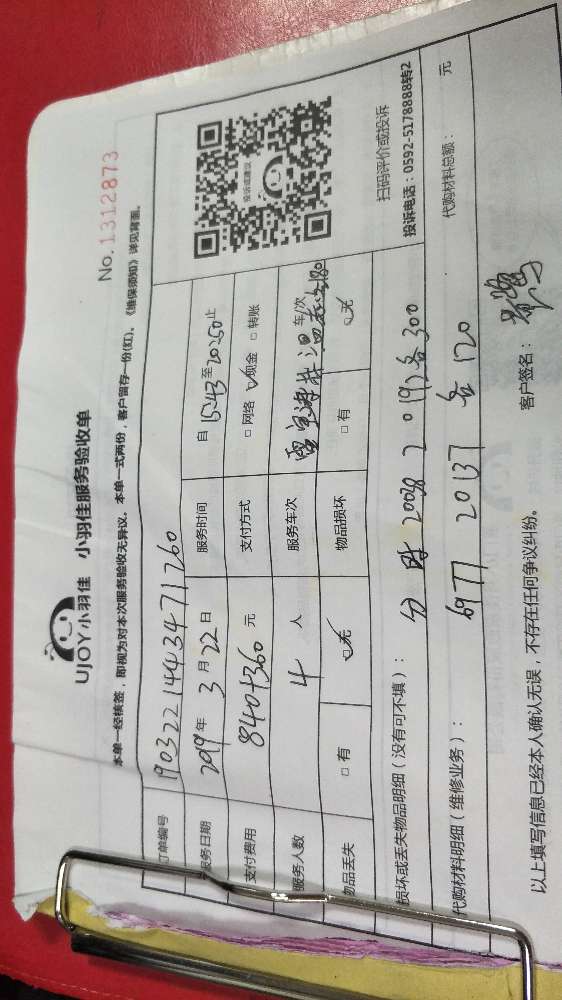 No. 1312873
UJOY小羽佳 小羽佳服务验收单
本单一经核签,即视为对本次服务验收无异议。本单一式两份,客户留存一份(红)。《维保须知》详见背面。
订单编号 190322144347 1260
服务日期 2019年 3 月 22 日 服务时间 自 15:43 至 20:50 止
支付费用 840+360 元 支付方式 □ 网络 ☑ 现金 □ 转账
服务人数 4 人 服务车次 车/次
物品丢失 □ 有 ☑ 无 物品损坏 □ 有 ☑ 无
投诉或建议
扫码评价或投诉
投诉电话:0592-5178888转2
损坏或丢失物品明细(没有可不填):
20038 20191 各300
代购材料明细(维修业务): 代购材料总额: 元
6977 20137 各 120
以上填写信息已经本人确认无误,不存在任何争议纠纷。 客户签名: